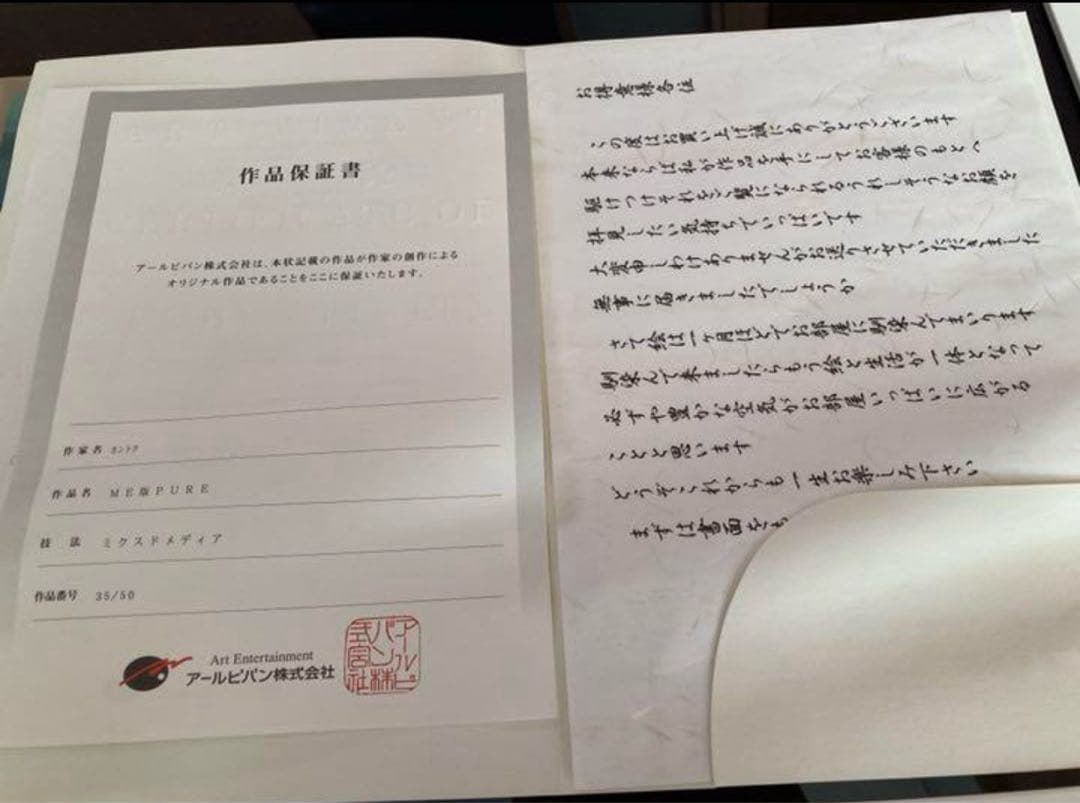 作品保証書
アールビバン株式会社は、本状記載の作品が作家の創作による
オリジナル作品であることをここに保証いたします。
作家名 カントク
作品名 ME版PURE
技 法 ミクスドメディア
作品番号 35/50
Art Entertainment
アールビバン株式会社
アールビバン株式会社
お得意様各位
この度はお買い上げ誠にありがとうございます
本来ならば私が作品を手にしてお客様のもとへ
駆けつけそれをご覧になられるうれしそうなお顔を
拝見したい気持ちでいっぱいです
大変申しわけありませんがお送りさせていただきました
無事に届きましたでしょうか
さて絵は一ヶ月ほどでお部屋に馴染んでまいります
馴染んで来ましたらもう絵と生活が一体となって
必ずや豊かな空気がお部屋いっぱいに広がる
ことと思います
どうぞこれからも一生お楽しみ下さい
まずは書面をも